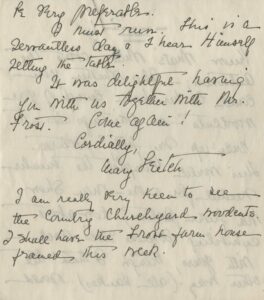 be very preferable.
I must run. This is a
servantless day & I hear Himself
setting the table.
It was delightful having
you with us together with Mr.
Frost. Come again!
Cordially,
Mary Leitch
I am really very keen to see
the Country Churchyard woodcuts.
I shall have the Frost farm house
framed this week.